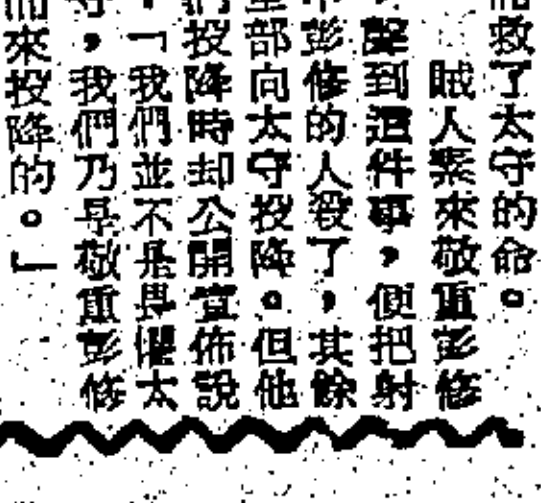 救了太守的命。
賊人素來敬重彭修
，聲到這件事，便把射
中彭修的人殺了，其餘
全部向太守投降。但他
們投降時却公開宣佈說
：「我們並不是畏懼太
守，我們乃是敬重彭修
而來投降的。」